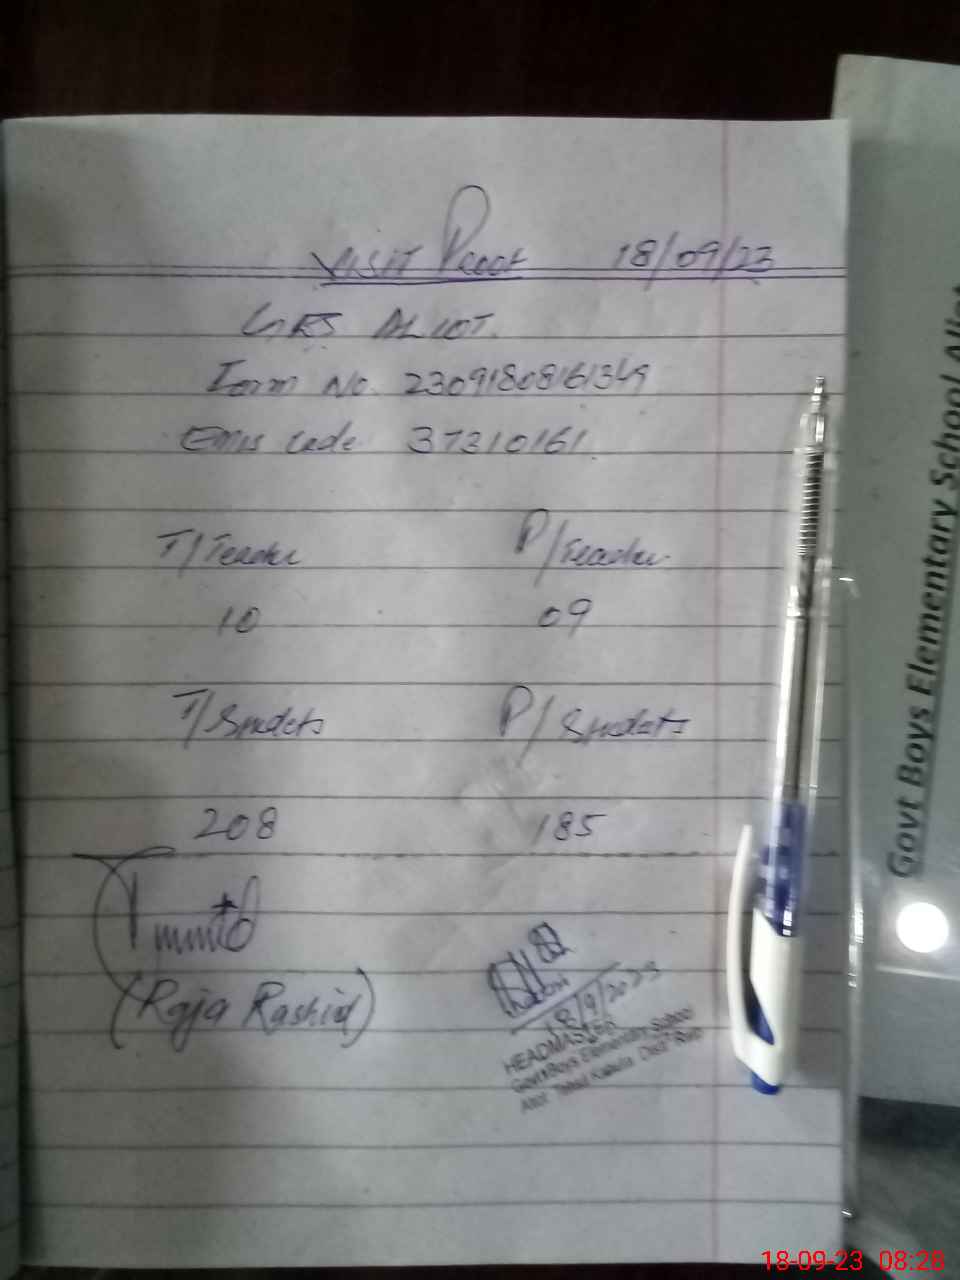 VISIT Proof 18/09/23
GES ALIOT.
Form No. 23091808161349
Emis Code 37310161
T/Teacher P/Teacher
10 09
T/Students P/Students
208 185
(Raja Rashid)
18/9/2023
HEADMASTER
Govt Boys Elementary School
Aliot Tehsil Kahuta Distt Rwp
Govt Boys Elementary School Aliot
18-09-23 08:28